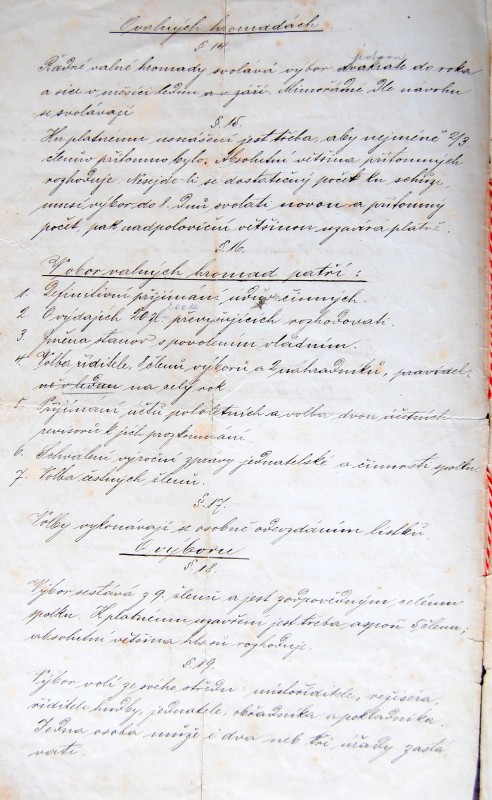 O valných hromadách.
§ 14.
jednou
Řádné valné hromady svolává výbor dvakráte do roka
a sice v měsíci lednu a v září. Mimořádné dle návrhu
se svolávají
§. 15.
Ku platnému usnášení jest třeba, aby nejméně 2/3
členův přítomno bylo. Absolutní většina přítomných
rozhoduje. Nesejde-li se dostatečný počet ku schůze,
musí výbor do 8. dnů svolati novou a přítomný
počet, pak nadpoloviční většinou uzavírá platně.
§. 16.
V obor valných hromad patří:
1. Definitivní přijímání údův činných.
2. O vydajích 20 zl. převyšujících rozhodovati.
3. Změna stanov s povolením vládním.
4. Volba ředitele, 8 členů výborů a 2 náhradníků, pravidel-
ně v lednu na celý rok
5. Přijímání účtů pololetních a volba dvou účetních
revisorů k jich prozkoumání
6. Schválení výroční zprávy jednatelské o činnosti spolku.
7. Volba čestných členů.
§. 17.
Volby vykonávají se osobně odevzdáním lístků.
O výboru
§. 18.
Výbor sestává z 9. členů a jest zodpovědným celému
spolku. K platnému uzavření jest třeba aspoň 5 členů;
absolutní většina hlasů rozhoduje.
§. 19.
Výbor volí ze svého středu: místoředitele, režiséra,
ředitele hudby, jednatele, obřadníka a pokladníka.
Jedna osobá může i dva neb tři úřady zastá
vati.